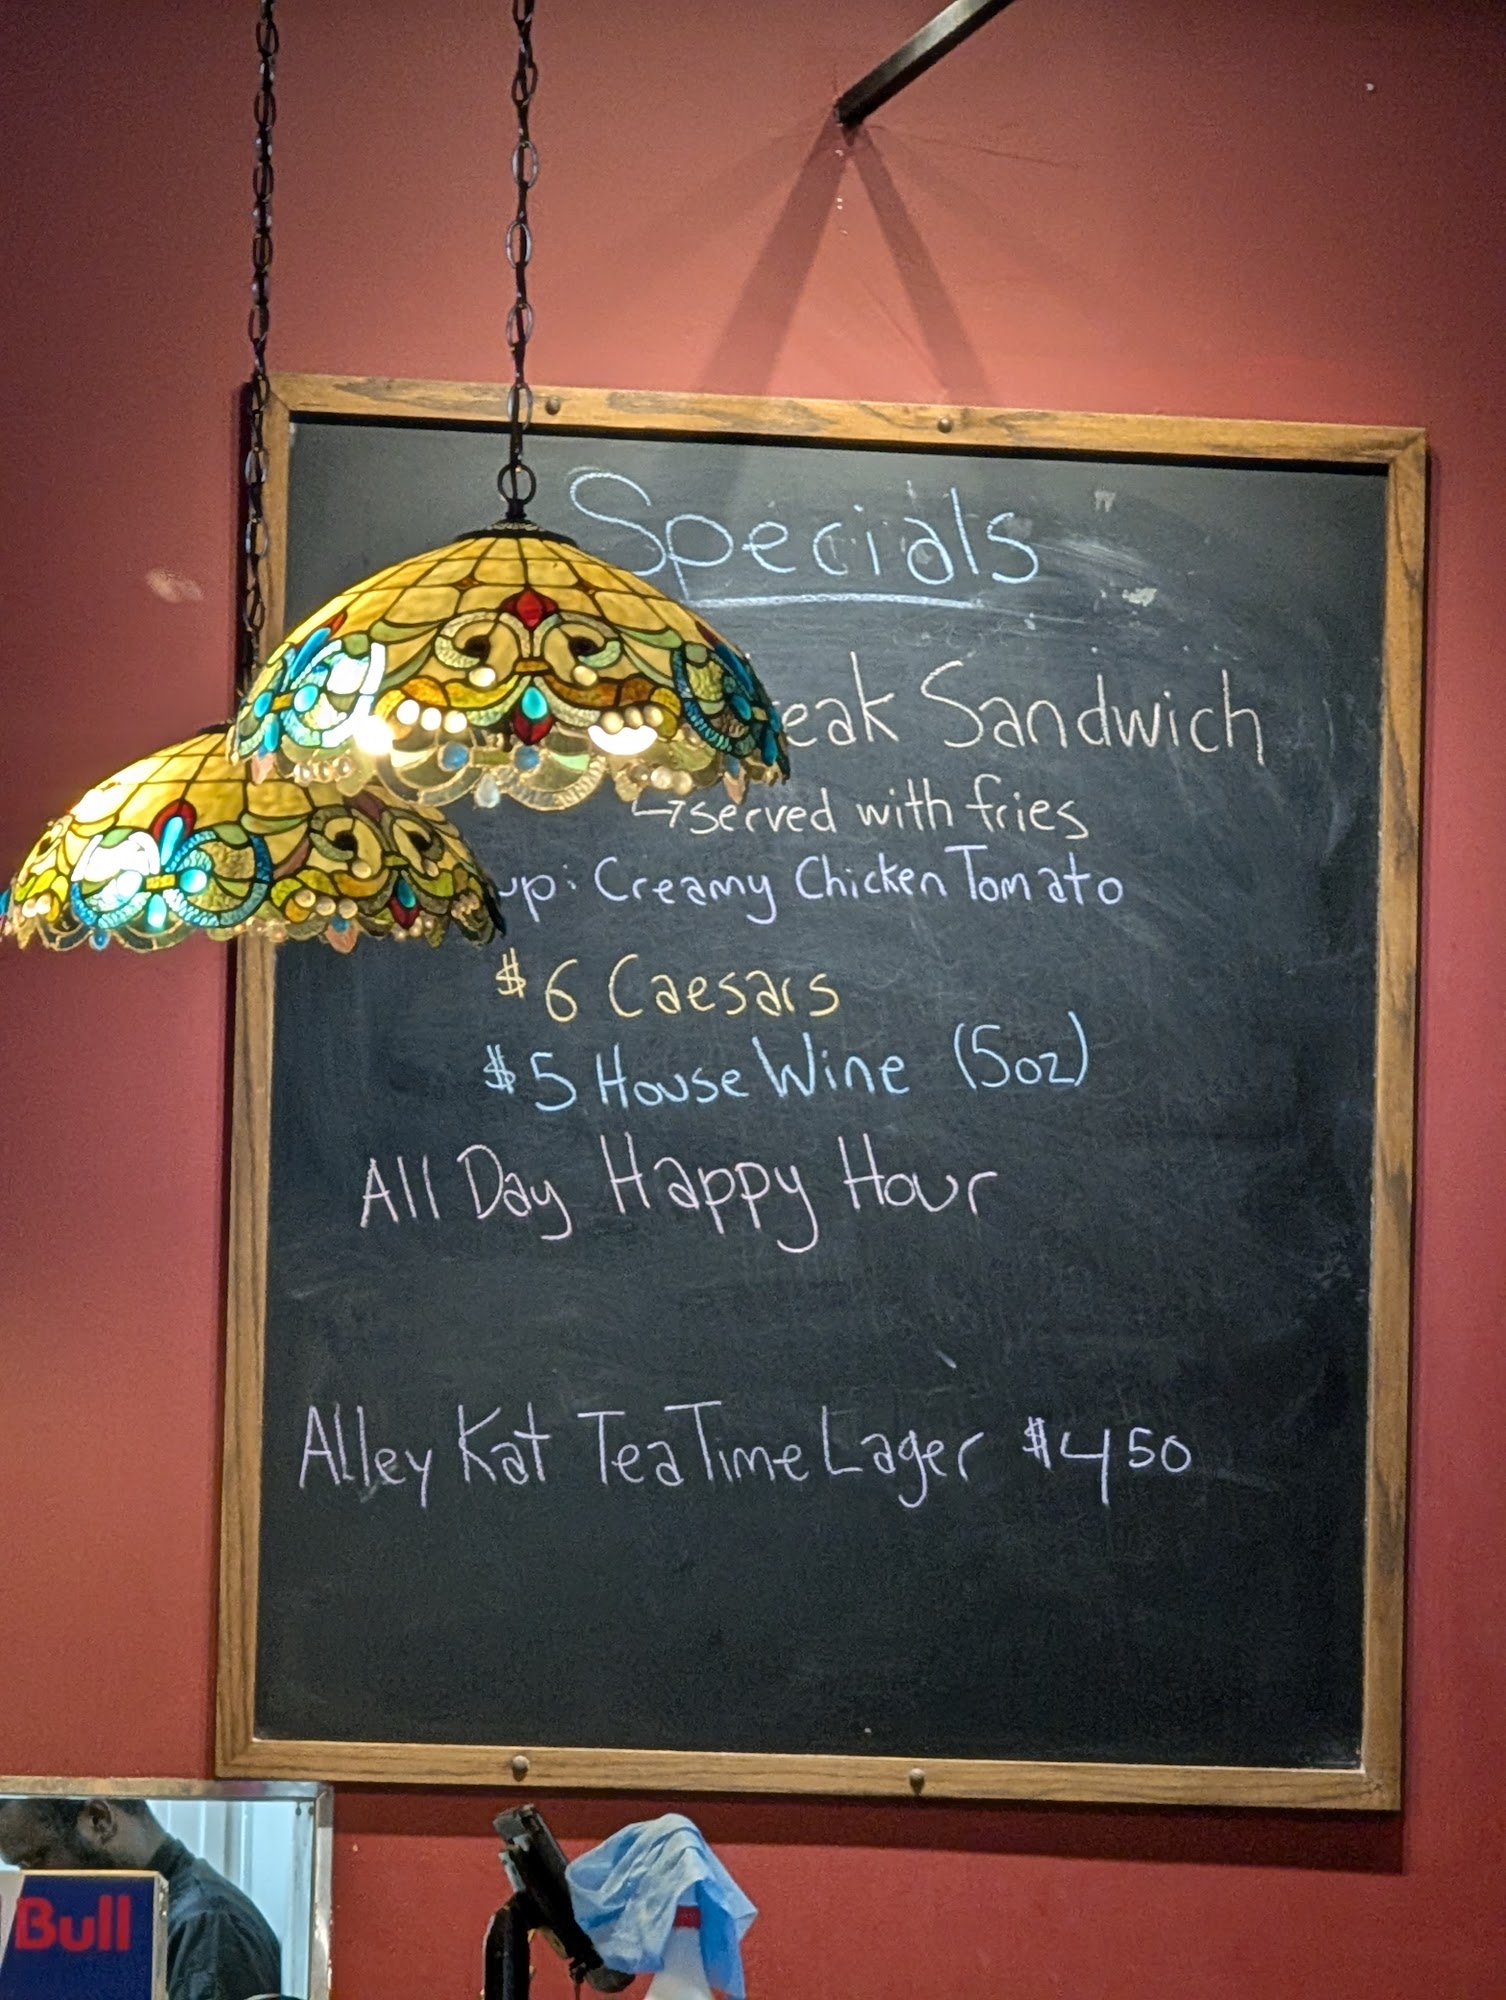 Specials
Sandwich
served with fries
Creamy Chicken Tomato
$6 Caesars
$5 House Wine (5oz)
All Day Happy Hour
Alley Kat Tea Time Lager $450
Bull